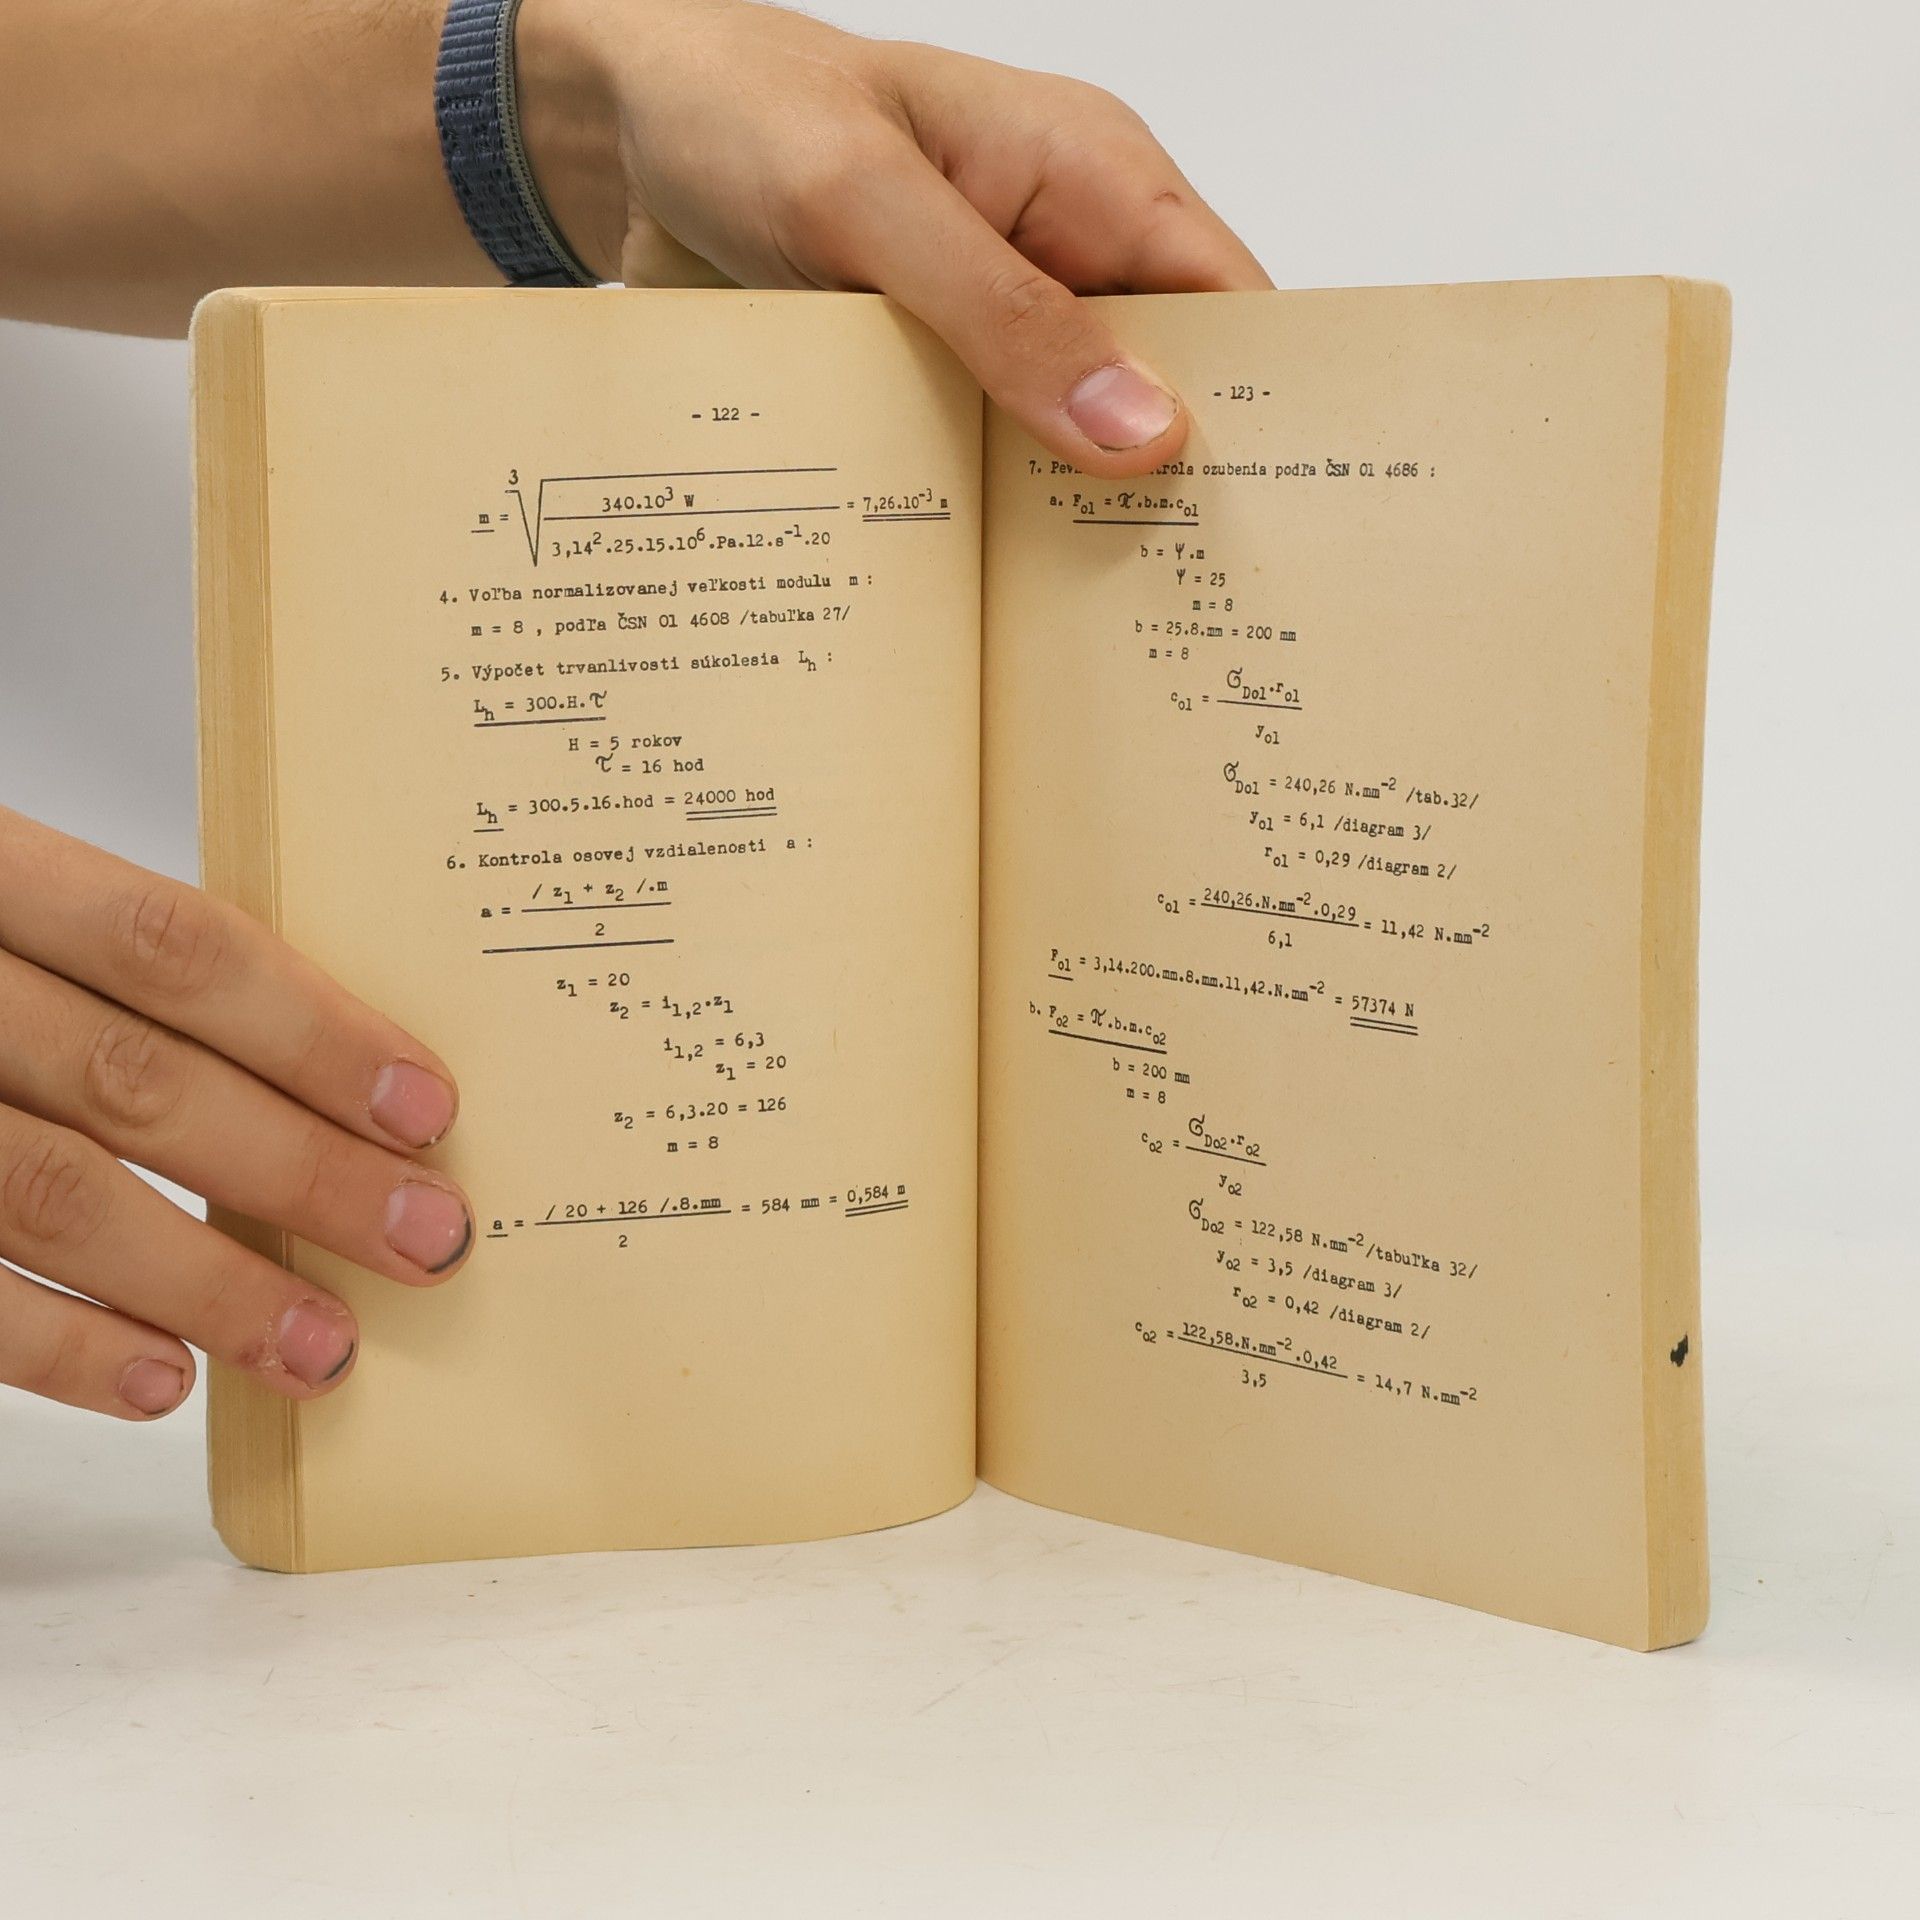 - 122 -
m = ∛ 340.10³ W / 3,14².25.15.10⁶.Pa.12.s⁻¹.20 = 7,26.10⁻³ m
4. Voľba normalizovanej veľkosti modulu m :
m = 8 , podľa ČSN 01 4608 /tabuľka 27/
5. Výpočet trvanlivosti súkolesia Lh :
Lh = 300.H.τ
H = 5 rokov
τ = 16 hod
Lh = 300.5.16.hod = 24000 hod
6. Kontrola osovej vzdialenosti a :
a = / z1 + z2 /.m
2
z1 = 20
z2 = i1,2.z1
i1,2 = 6,3
z1 = 20
z2 = 6,3.20 = 126
m = 8
a = / 20 + 126 /.8.mm = 584 mm = 0,584 m
2
- 123 -
7. ozubenia podľa ČSN 01 4686 :
a. Fo1 = π.b.m.co1
b = Ψ.m
Ψ = 25
m = 8
b = 25.8.mm = 200 mm
m = 8
co1 = σDo1.ro1
yo1
σDo1 = 240,26 N.mm⁻² /tab.32/
yo1 = 6,1 /diagram 3/
ro1 = 0,29 /diagram 2/
co1 = 240,26.N.mm⁻².0,29 = 11,42 N.mm⁻²
6,1
Fo1 = 3,14.200.mm.8.mm.11,42.N.mm⁻² = 57374 N
b. Fo2 = π.b.m.co2
b = 200 mm
m = 8
co2 = σDo2.ro2
yo2
σDo2 = 122,58 N.mm⁻²/tabuľka 32/
yo2 = 3,5 /diagram 3/
ro2 = 0,42 /diagram 2/
co2 = 122,58.N.mm⁻².0,42 = 14,7 N.mm⁻²
3,5